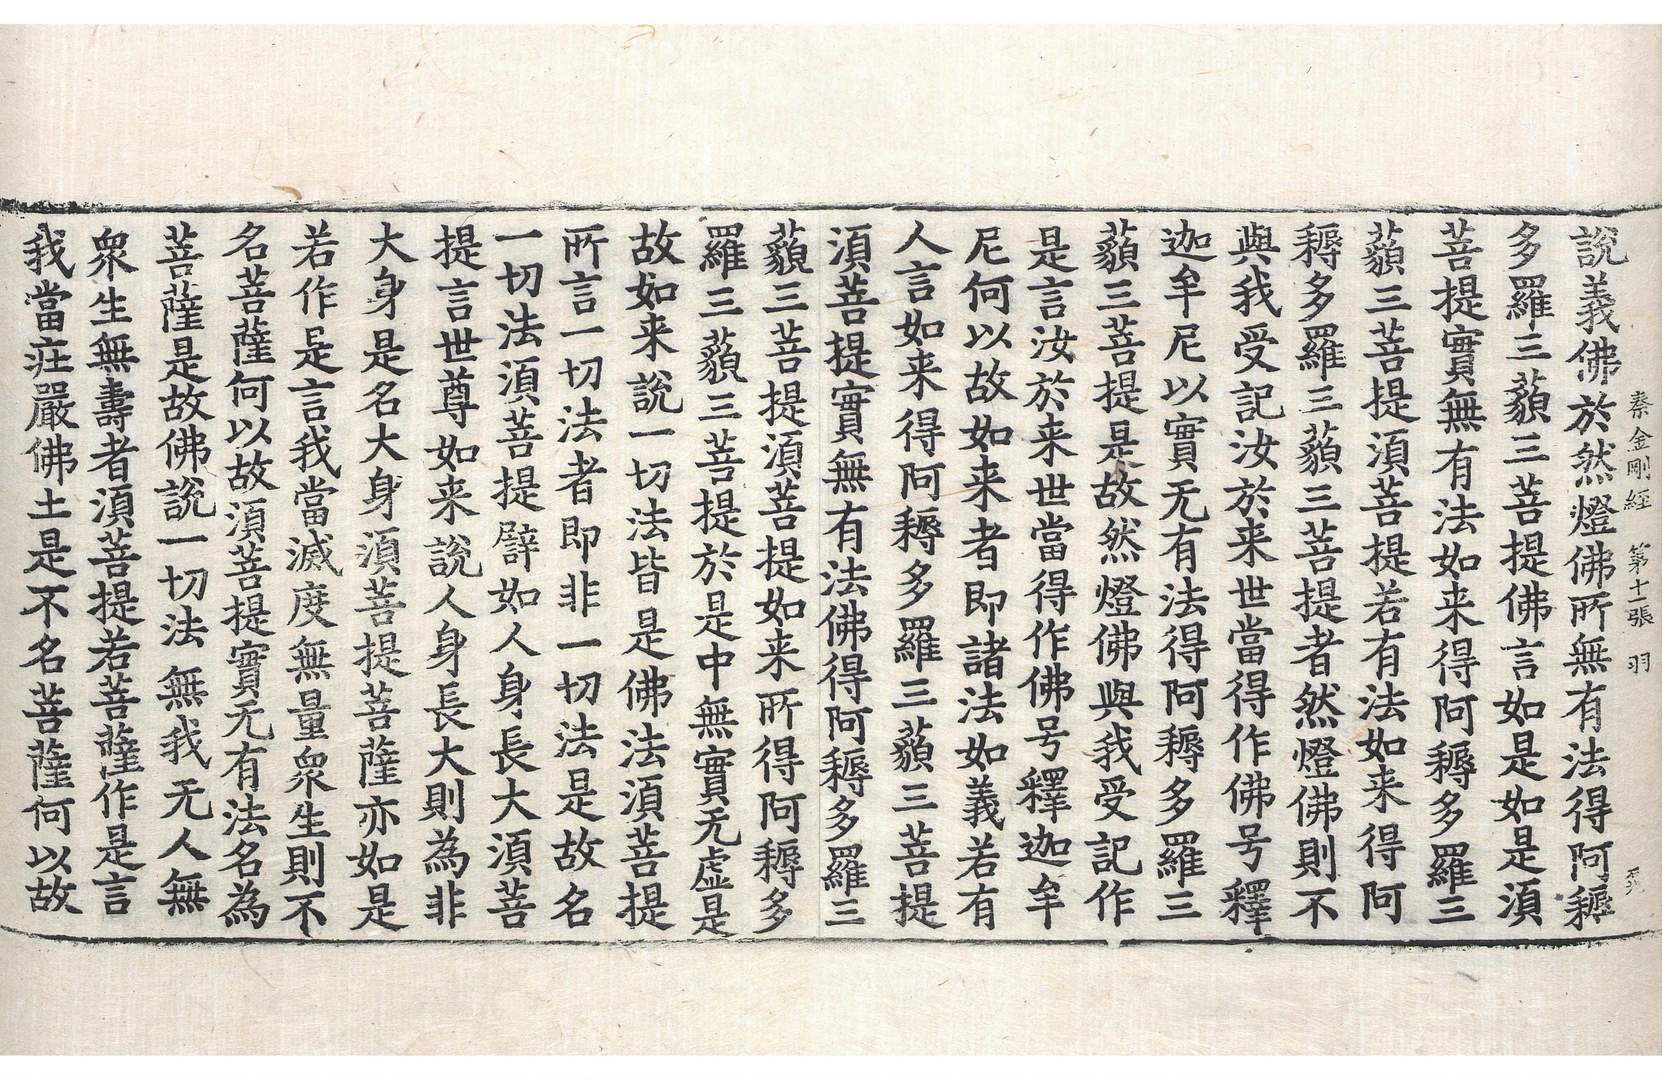 秦金剛經 第十張 羽
說義佛於然燈佛所無有法得阿耨
多羅三藐三菩提佛言如是如是須
菩提實無有法如来得阿耨多羅三
藐三菩提須菩提若有法如来得阿
耨多羅三藐三菩提者然燈佛則不
與我受記汝於来世當得作佛号釋
迦牟尼以實无有法得阿耨多羅三
藐三菩提是故然燈佛與我受記作
是言汝於来世當得作佛号釋迦牟
尼何以故如来者即諸法如義若有
人言如来得阿耨多羅三藐三菩提
須菩提實無有法佛得阿耨多羅三
藐三菩提須菩提如来所得阿耨多
羅三藐三菩提於是中無實无虛是
故如来說一切法皆是佛法須菩提
所言一切法者即非一切法是故名
一切法須菩提譬如人身長大須菩
提言世尊如来說人身長大則為非
大身是名大身須菩提菩薩亦如是
若作是言我當滅度無量衆生則不
名菩薩何以故須菩提實无有法名為
菩薩是故佛說一切法無我无人無
衆生無壽者須菩提若菩薩作是言
我當庄嚴佛土是不名菩薩何以故